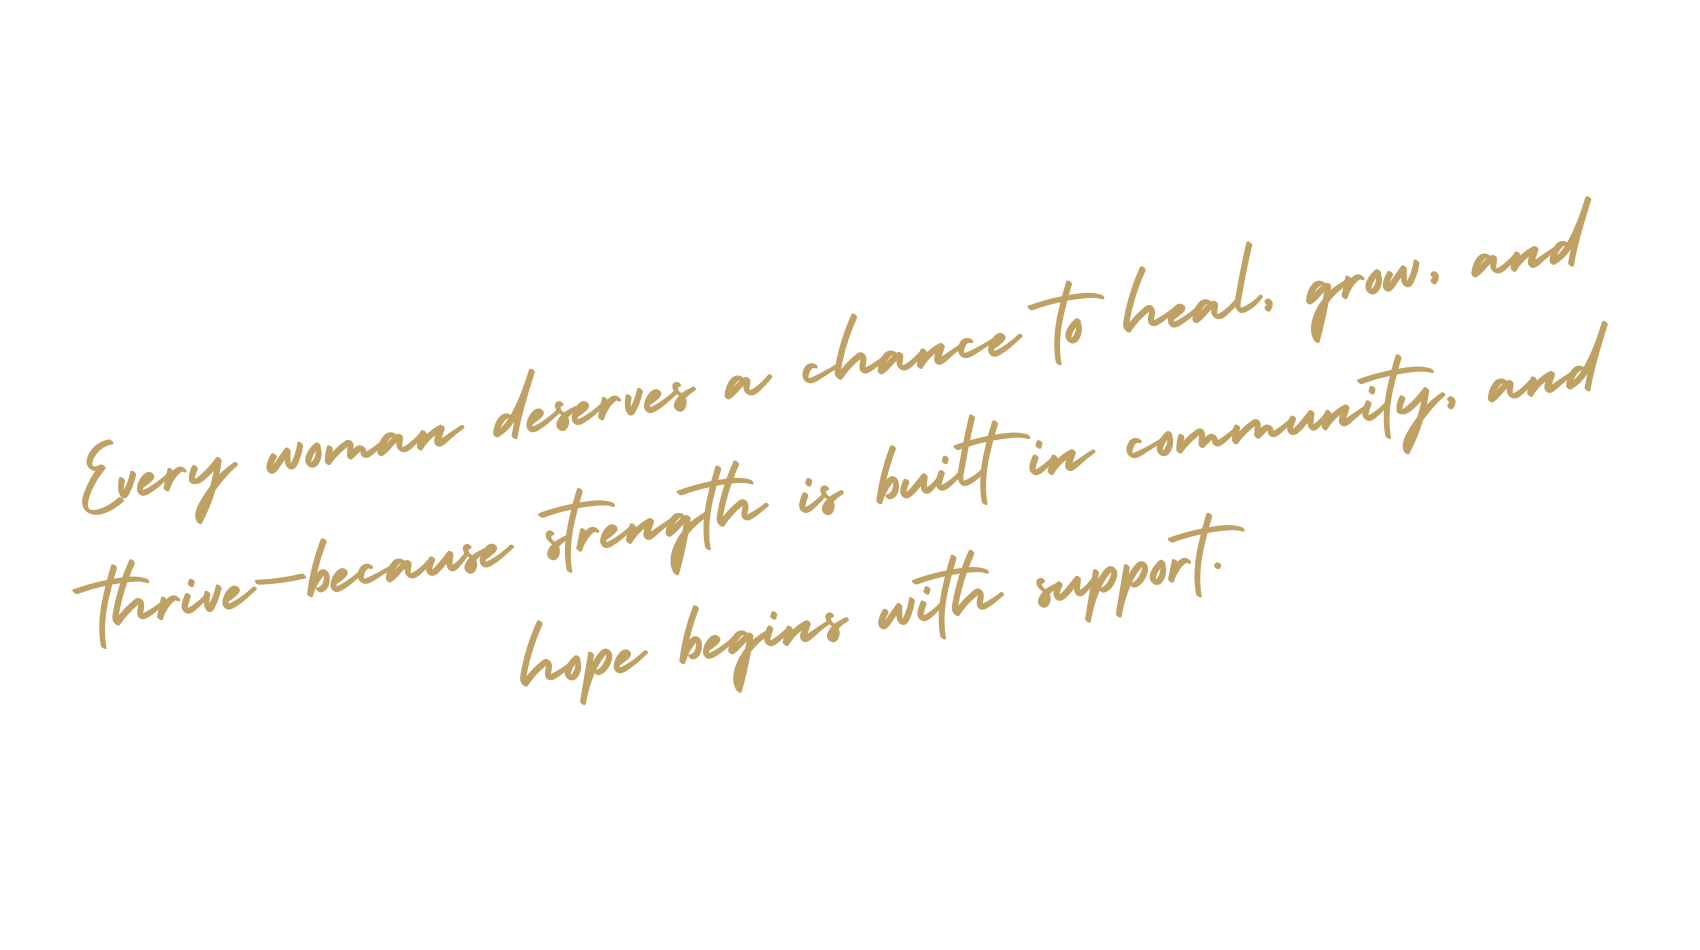 Every woman deserves a chance to heal, grow, and
thrive—because strength is built in community, and
hope begins with support.